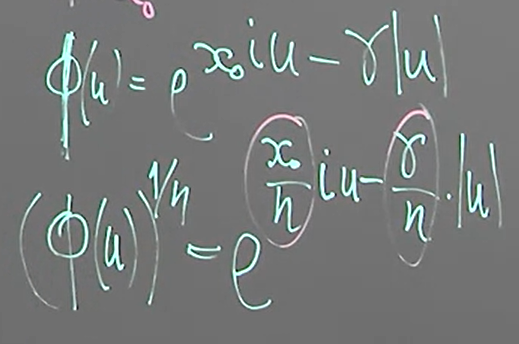 ϕ(u) = e^{x₀iu − γ|u|}
(ϕ(u))^{1/n} = e^{\frac{x₀}{n}iu − \frac{γ}{n}·|u|}